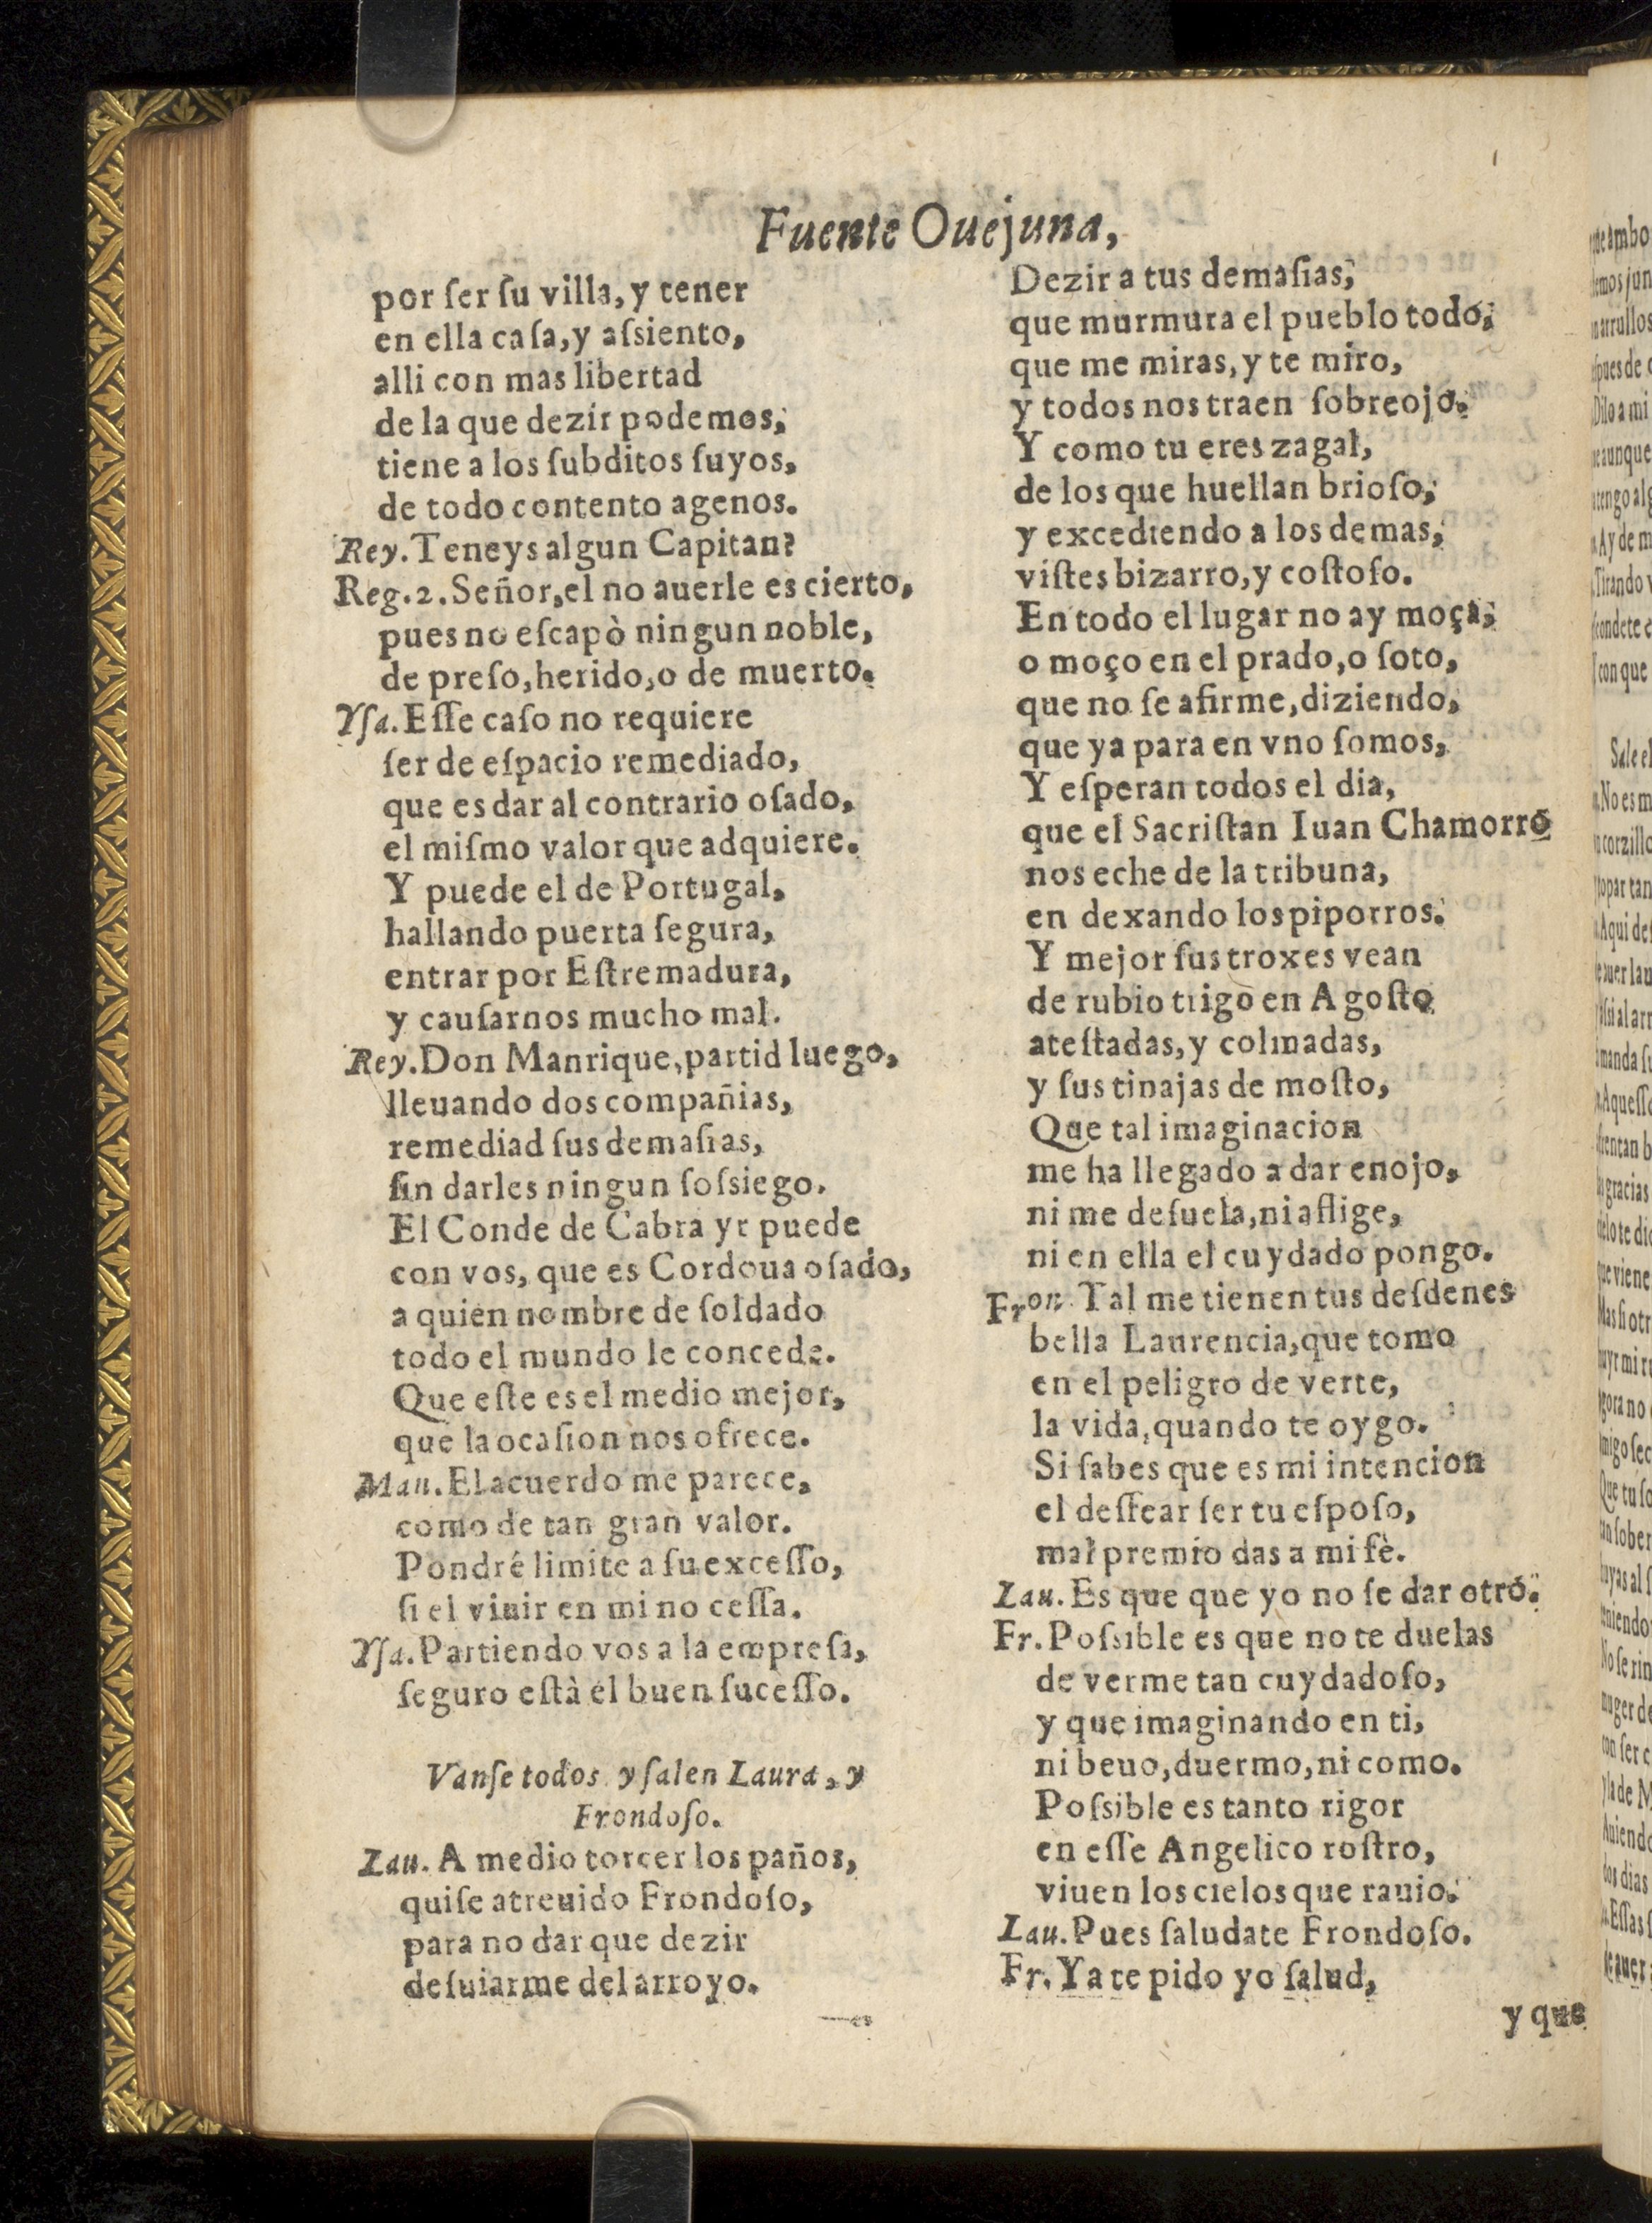 Fuente Ouejuna,
por ſer ſu villa, y tener
en ella caſa, y aſsiento,
alli con mas libertad
de la que dezir podemos,
tiene a los ſubditos ſuyos,
de todo contento agenos.
Rey. Teneys algun Capitan?
Reg. 2. Señor, el no auerle es cierto,
pues no eſcapò ningun noble,
de preſo, herido, o de muerto.
Yſa. Eſſe caſo no requiere
ſer de eſpacio remediado,
que es dar al contrario oſado,
el miſmo valor que adquiere.
Y puede el de Portugal,
hallando puerta ſegura,
entrar por Eſtremadura,
y cauſarnos mucho mal.
Rey. Don Manrique, partid luego,
lleuando dos compañias,
remediad ſus demaſias,
ſin darles ningun ſoſsiego.
El Conde de Cabra yr puede
con vos, que es Cordoua oſado,
a quien nombre de ſoldado
todo el mundo le concede.
Que eſte es el medio mejor,
que la ocaſion nos ofrece.
Man. El acuerdo me parece,
como de tan gran valor.
Pondré limite a ſu exceſſo,
ſi el viuir en mi no ceſſa.
Yſa. Partiendo vos a la empreſa,
ſeguro eſtà el buen ſuceſſo.
Vanſe todos y ſalen Laura, y
Frondoſo.
Lau. A medio torcer los paños,
quiſe atreuido Frondoſo,
para no dar que dezir
deſuiarme del arroyo.
Dezir a tus demaſias,
que murmura el pueblo todo,
que me miras, y te miro,
y todos nos traen ſobreojo.
Y como tu eres zagal,
de los que huellan brioſo,
y excediendo a los demas,
viſtes bizarro, y coſtoſo.
En todo el lugar no ay moça,
o moço en el prado, o ſoto,
que no ſe afirme, diziendo,
que ya para en vno ſomos,
Y eſperan todos el dia,
que el Sacriſtan Iuan Chamorro
nos eche de la tribuna,
en dexando los piporros.
Y mejor ſus troxes vean
de rubio trigo en Agoſto
ateſtadas, y colmadas,
y ſus tinajas de moſto,
Que tal imaginacion
me ha llegado a dar enojo,
ni me deſuela, ni aflige,
ni en ella el cuydado pongo.
Fron. Tal me tienen tus deſdenes
bella Laurencia, que tomo
en el peligro de verte,
la vida, quando te oygo.
Si ſabes que es mi intencion
el deſſear ſer tu eſpoſo,
mal premio das a mi fè.
Lau. Es que que yo no ſe dar otro.
Fr. Poſsible es que no te duelas
de verme tan cuydadoſo,
y que imaginando en ti,
ni beuo, duermo, ni como.
Poſsible es tanto rigor
en eſſe Angelico roſtro,
viuen los cielos que rauio.
Lau. Pues ſaludate Frondoſo.
Fr. Ya te pido yo ſalud,
y que